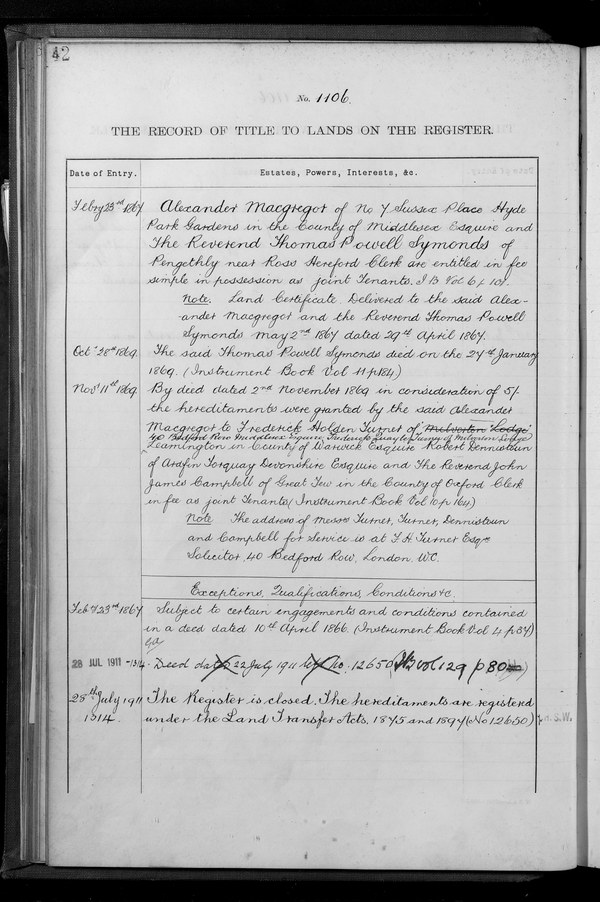 42
No. 1106.
THE RECORD OF TITLE TO LANDS ON THE REGISTER.
Date of Entry.
Estates, Powers, Interests, &c.
Febry 23rd 1867 Alexander Macgregor of No 7 Sussex Place Hyde
Park Gardens in the County of Middlesex Esquire and
The Reverend Thomas Powell Symonds of
Pengethly near Ross Hereford Clerk are entitled in fee
simple in possession as joint Tenants. I B Vol 6 p 101.
Note. Land Certificate Delivered to the said Alex-
ander Macgregor and the Reverend Thomas Powell
Symonds May 2nd 1867 dated 29th April 1867.
Octr 28th 1869. The said Thomas Powell Symonds died on the 24th January
1869. (Instrument Book Vol 11 p 184)
Novr 11th 1869. By deed dated 2nd November 1869 in consideration of 5/-
the hereditaments were granted by the said Alexander
Macgregor to Frederick Holden Turner of Milverton Lodge
40 Bedford Row Middlesex Esquire, Frederick Quayle Turner of Milverton Lodge
Leamington in County of Warwick Esquire Robert Dennistoun
of Ardfin Torquay Devonshire Esquire and The Reverend John
James Campbell of Great Tew in the County of Oxford Clerk
in fee as joint Tenants (Instrument Book Vol 10 p 164)
Note The address of Messrs Turner, Turner, Dennistoun
and Campbell for Service is at F. H. Turner Esqre
Solicitor, 40 Bedford Row, London, W.C.
Exceptions, Qualifications, Conditions &c.
Feby 23rd 1867 Subject to certain engagements and conditions contained
in a deed dated 10th April 1866. (Instrument Book Vol 4 p 34)
28 JUL 1911 - 1314. Deed dated 22 July 1911 No. 12650 (IB vol 129 p 80
28th July 1911 The Register is closed. The hereditaments are registered
1314. under the Land Transfer Acts, 1875 and 1897 (No 12650) S.W.